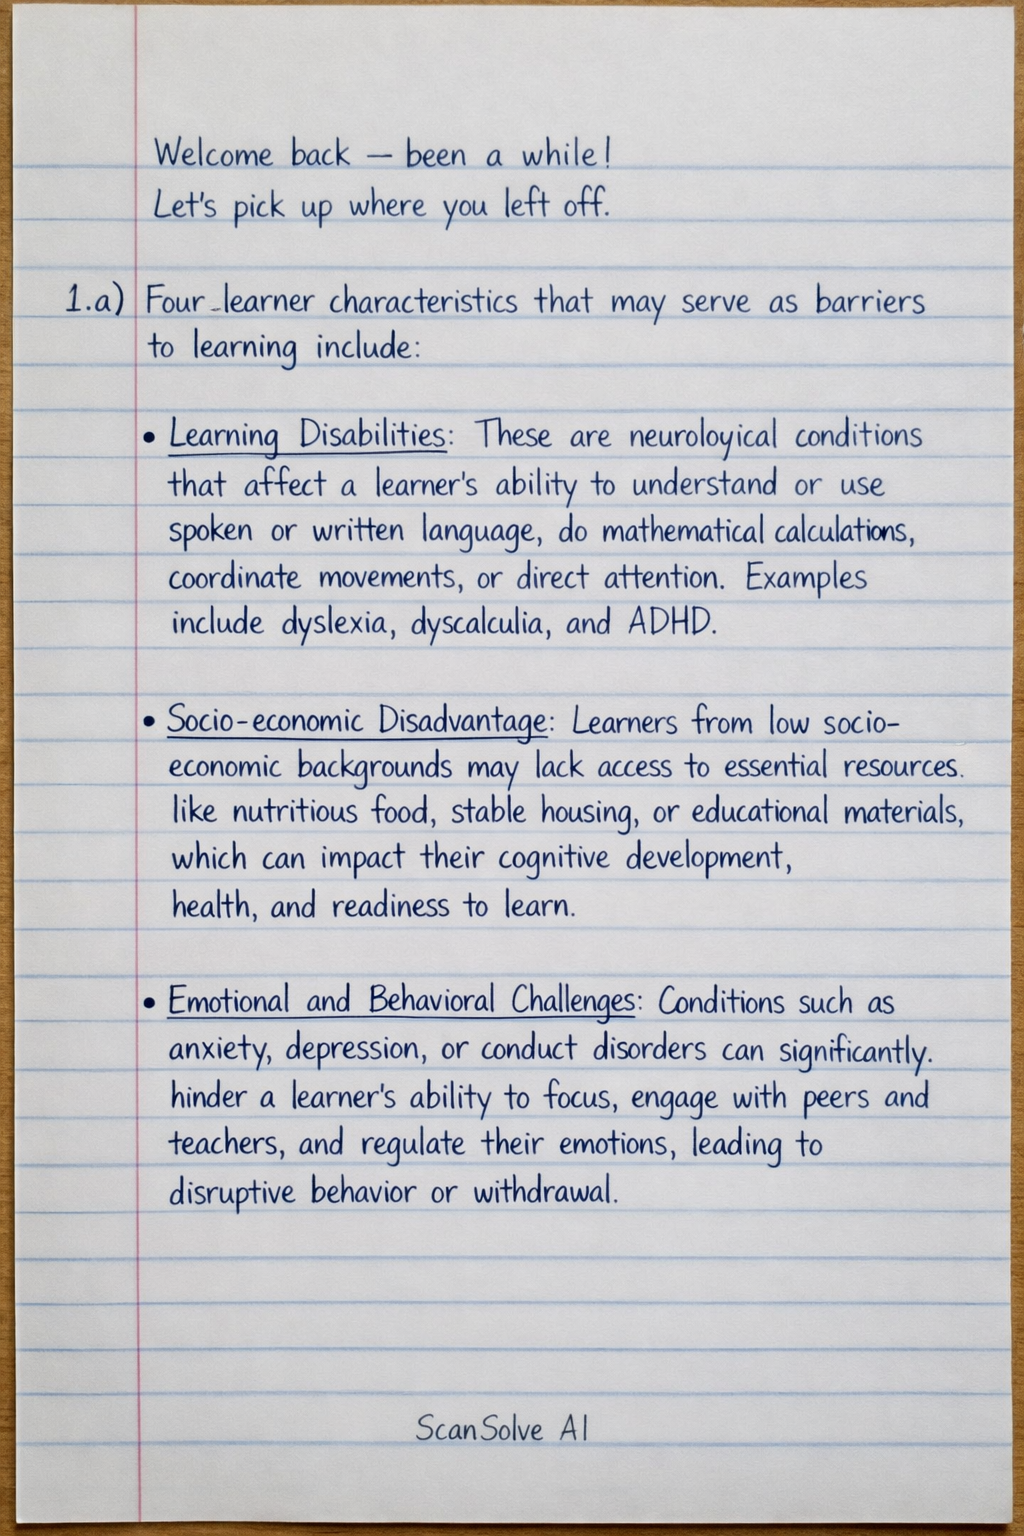 Welcome back — been a while!
Let's pick up where you left off.
1.a) Four learner characteristics that may serve as barriers
to learning include:
• Learning Disabilities: These are neuroloyical conditions
that affect a learner's ability to understand or use
spoken or written language, do mathematical calculations,
coordinate movements, or direct attention. Examples
include dyslexia, dyscalculia, and ADHD.
• Socio-economic Disadvantage: Learners from low socio-
economic backgrounds may lack access to essential resources.
like nutritious food, stable housing, or educational materials,
which can impact their cognitive development,
health, and readiness to learn.
• Emotional and Behavioral Challenges: Conditions such as
anxiety, depression, or conduct disorders can significantly.
hinder a learner's ability to focus, engage with peers and
teachers, and regulate their emotions, leading to
disruptive behavior or withdrawal.
ScanSolve AI